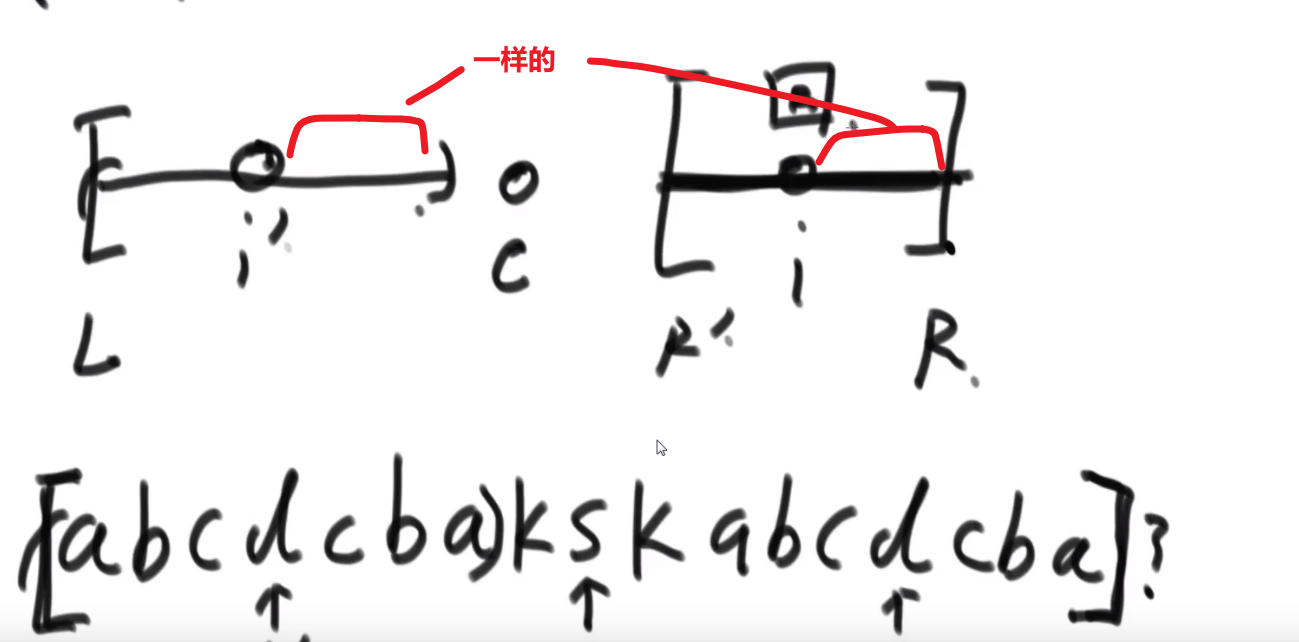 一样的
[ ( ) [ ]
i' C i
L R' R
[(abcdcba)kskabcdcba]?
↑ ↑ ↑